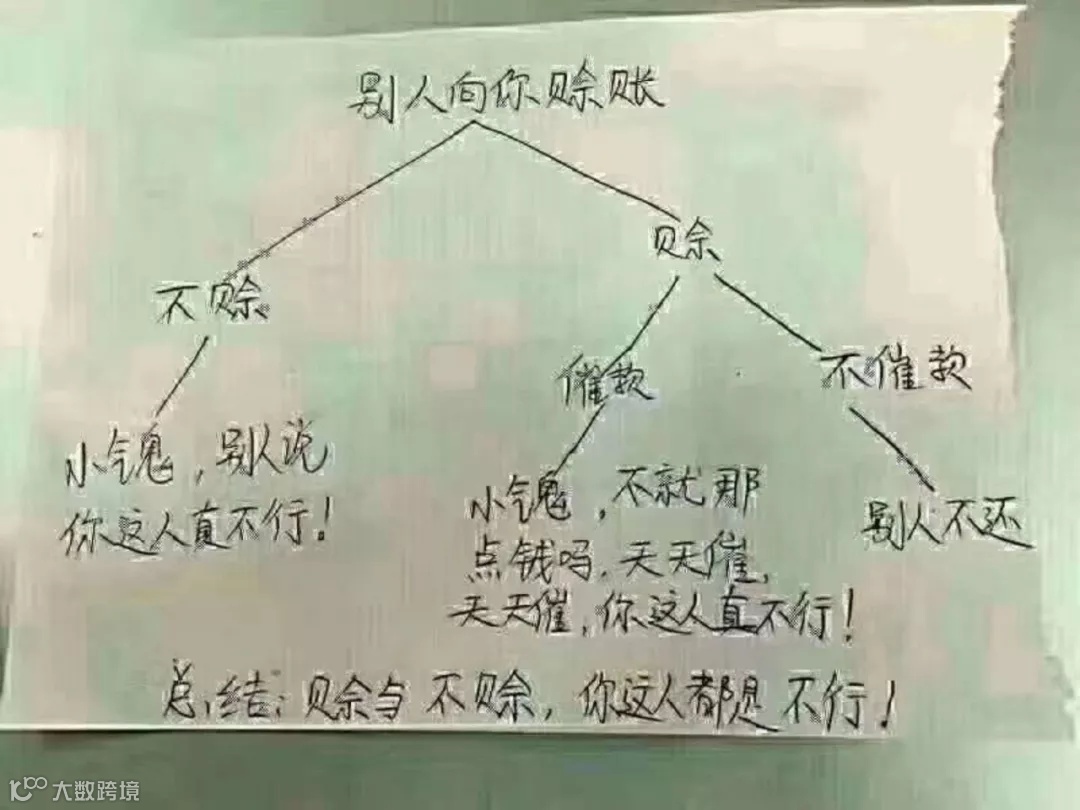 别人向你赊账
赊
不赊
催款
不催款
小气鬼，别人说
你这人真不行！
小气鬼，不就那
点钱吗，天天催，
天天催，你这人真不行！
别人不还
总结：赊与不赊，你这人都是不行！
大数跨境